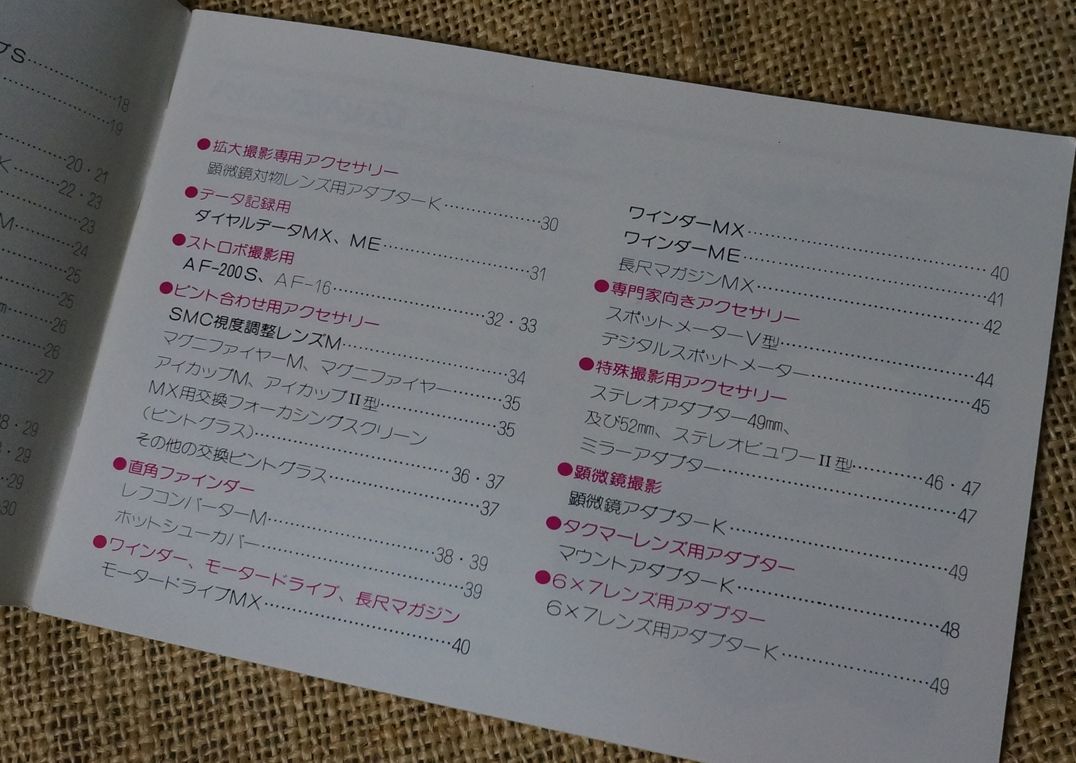 プS……18
……19
……20・21
K……22・23
……23
M……24
……25
……25
……26
……26
……27
28・29
・29
……29
30
●拡大撮影専用アクセサリー
顕微鏡対物レンズ用アダプターK……30
●データ記録用
ダイヤルデータMX、ME……31
●ストロボ撮影用
AF-200S、AF-16……32・33
●ピント合わせ用アクセサリー
SMC視度調整レンズM……34
マグニファイヤーM、マグニファイヤー……35
アイカップM、アイカップⅡ型……35
MX用交換フォーカシングスクリーン
（ピントグラス）……36・37
その他の交換ピントグラス……37
●直角ファインダー
レフコンバーターM……38・39
ホットシューカバー……39
●ワインダー、モータードライブ、長尺マガジン
モータードライブMX……40
ワインダーMX……40
ワインダーME……41
長尺マガジンMX……42
●専門家向きアクセサリー
スポットメーターV型……44
デジタルスポットメーター……45
●特殊撮影用アクセサリー
ステレオアダプター49㎜、
及び52㎜、ステレオビュワーⅡ型……46・47
ミラーアダプター……47
●顕微鏡撮影
顕微鏡アダプターK……49
●タクマーレンズ用アダプター
マウントアダプターK……48
●6×7レンズ用アダプター
6×7レンズ用アダプターK……49